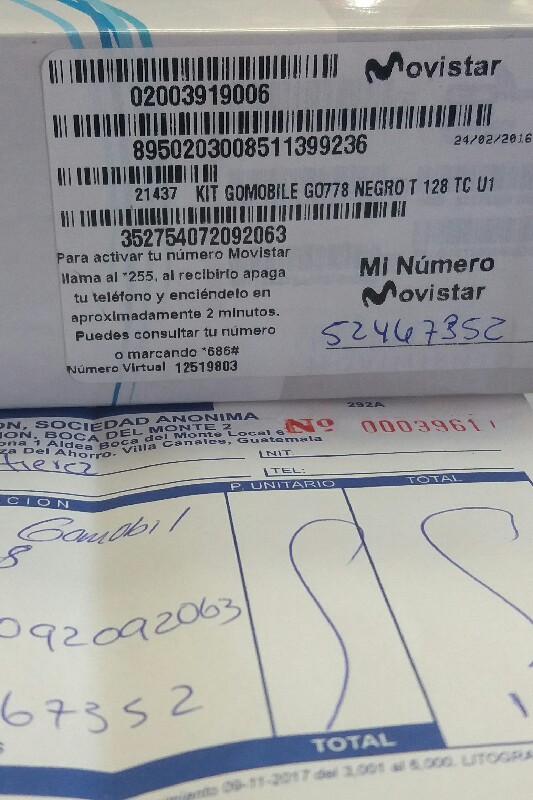 Movistar
02003919006
8950203008511399236
24/02/2016
21437 KIT GOMOBILE GO778 NEGRO T 128 TC U1
352754072092063
Para activar tu número Movistar
llama al *255, al recibirlo apaga
tu teléfono y enciéndelo en
aproximadamente 2 minutos.
Puedes consultar tu número
o marcando *686#
Número Virtual 12519803
Mi Número
Movistar
52467352
292A
ON, SOCIEDAD ANONIMA
ION, BOCA DEL MONTE 2
ona 1 Aldea Boca del Monte Local 6
za Del Ahorro. Villa Canales, Guatemala
Nº 0003961
NIT.
TEL:
CION
P. UNITARIO
TOTAL
Gomobil
8
092092063
67352
TOTAL
miento 09-11-2017 del 3,001 al 6,000. LITOGRA